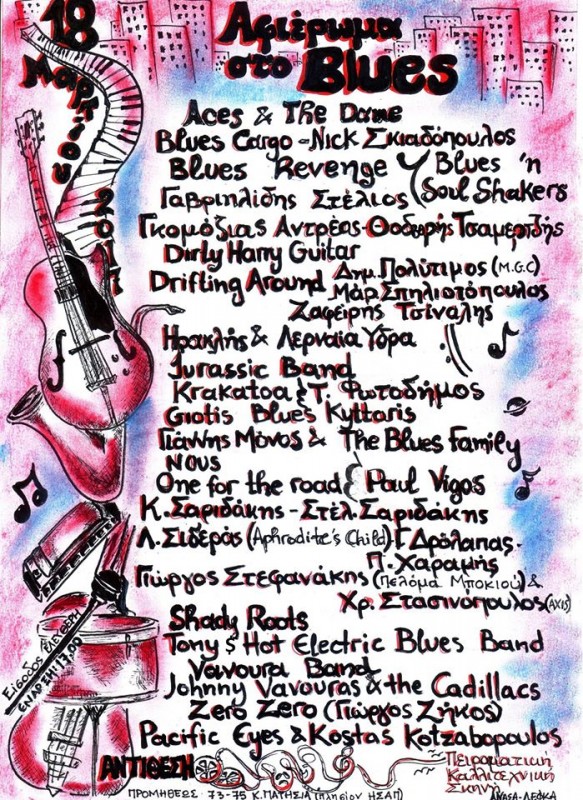 18 Μαρτίου 2017
Αφιέρωμα
στο Blues
Aces & The Dame
Blues Cargo - Nick Σκιαδόπουλος
Blues Revenge
Blues 'n
Soul Shakers
Γαβριηλίδης Στέλιος
Γκομόζιας Αντρέας - Θοδωρής Τσαμερτζής
Dirty Harry Guitar
Drifting Around
Δημ. Πολύτιμος (M.G.C)
Μαρ. Σπηλιοτόπουλος
Ζαφείρης Τσίναλης
Ηρακλής & Λερναία Υδρα
Jurassic Band
Krakatoa & Τ. Φωτοδήμος
Giotis Blues Kyttaris
Γιάννης Μόνος & The Blues Family
NOUS
One for the road & Paul Vigos
Κ. Σαριδάκης - Στέλ. Σαριδάκης
Λ. Σιδεράς (Aphrodite's Child) - Γ. Δρόλαπας -
Π. Χαραμής
Γιώργος Στεφανάκης (Πελόμα Μποκιού) &
Χρ. Στασινόπουλος (AXIS)
Shady Roots
Tony's Hot Electric Blues Band
Vavoura Band
Johnny Vavouras & the Cadillacs
Zero Zero (Γιώργος Ζήκος)
Pacific Eyes & Kostas Kotzabopoulos
Είσοδος ελεύθερη
ΕΝΑΡΞΗ 17.00
ΑΝΤΙΘΕΣΗ
Πειραματική
Καλλιτεχνική
Σκηνή
ΠΡΟΜΗΘΕΩΣ 73-75 Κ. ΠΑΤΗΣΙΑ (πλησίον ΗΣΑΠ)